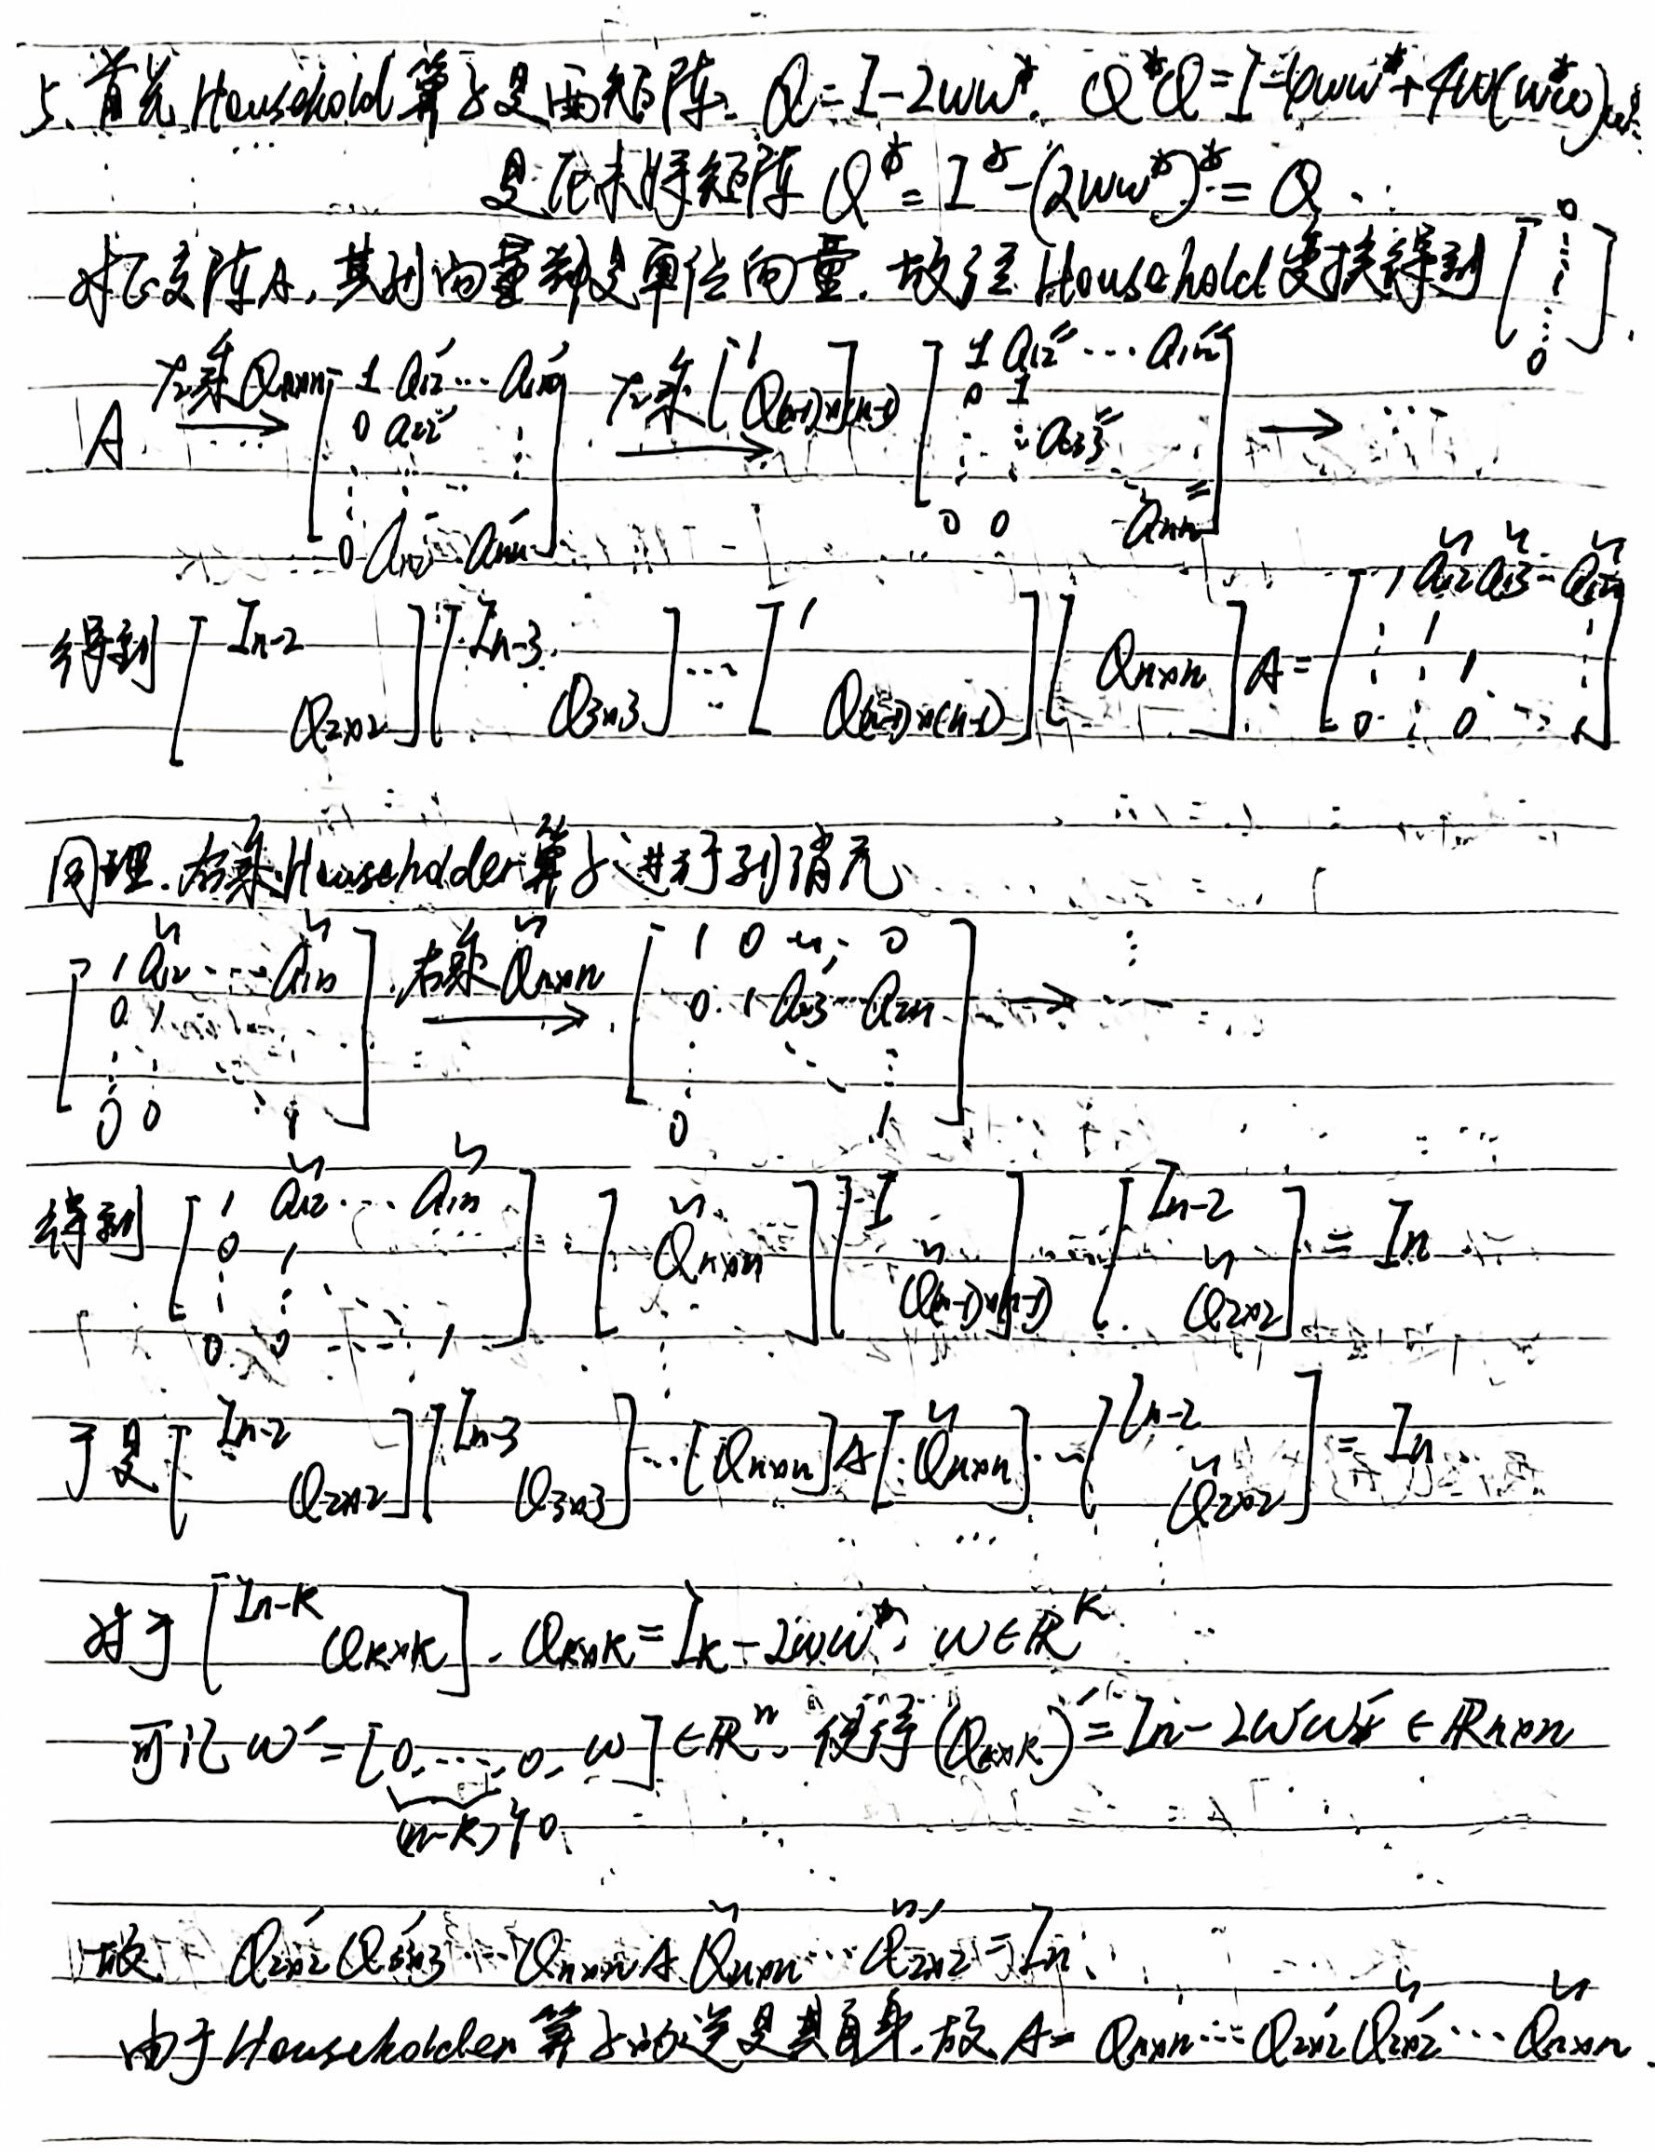 5. 首先 Household 算子是酉矩阵. Q = I - 2ww*. Q*Q = I - 4ww* + 4w(w*w)w*
是厄米特矩阵 Q* = I* - (2ww*)* = Q.
对正交阵A, 其列向量都是单位向量. 故经 Household 变换得到 [0 ⋮ 0].
A 左乘 Qn×n → [1 a12' ⋯ a1n' ; 0 a22' ⋮ ; ⋮ ⋮ ⋯ ⋮ ; 0 an2' ann'] 左乘 [1 Q(n-1)×(n-1)] → [1 a12'' ⋯ a1n'' ; 0 1 ; ⋮ ⋮ a33'' ; 0 0 ann''] → ⋯
得到 [In-2 Q2×2] [In-3 Q3×3] ⋯ [1 Q(n-1)×(n-1)] [Qn×n] A = [1 ã12 ã13 ⋯ ã1n ; ⋮ 1 ⋮ ; ⋮ ⋮ 1 ⋮ ; 0 ⋮ 0 ⋯ 1]
同理. 右乘 Householder 算子进行列消元
[1 ã12 ⋯ ã1n ; 0 1 ; ⋮ ⋮ ; 0 0 1] 右乘 Q̃n×n → [1 0 ⋯ 0 ; 0 1 a23' ⋯ a2n' ; ⋮ ⋱ ⋮ ; 0 1] → ⋯
得到 [1 ã12 ⋯ ã1n ; 0 1 ; ⋮ ⋮ ; 0 0 ⋯ 1] [Q̃n×n] [I Q̃(n-1)×(n-1)] ⋯ [In-2 Q̃2×2] = In
于是 [In-2 Q2×2] [In-3 Q3×3] ⋯ [Qn×n] A [Q̃n×n] ⋯ [In-2 Q̃2×2] = In
对于 [In-k Qk×k]. Qk×k = Ik - 2ww*, w ∈ R^k
可记 w' = [0, ⋯, 0, w] ∈ R^n, 使得 (Qk×k)' = In - 2w'w'* ∈ Rn×n
(n-k)个0
故 Q2×2' Q3×3' ⋯ Qn×n A Q̃n×n ⋯ Q̃2×2' = In
由于 Householder 算子的逆是其自身. 故 A = Qn×n ⋯ Q2×2' Q̃2×2' ⋯ Q̃n×n.